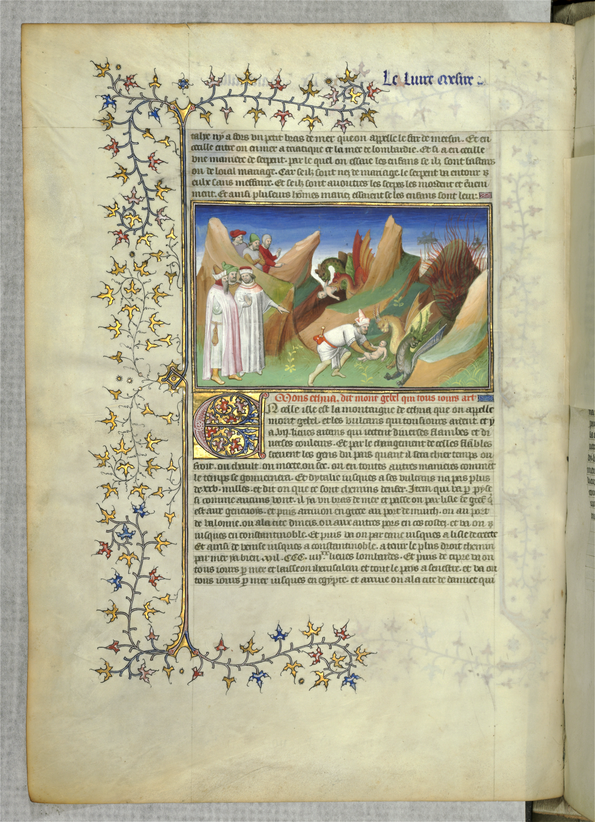 Le liure
talye ny a fors vn petit bras de mer que on appelle le far de meschin. Et en
ceille entre on en mer adriatique et la mer de lombardie. Et si a en ceille
vne maniere de serpent par le quel on essaie les enfans se ilz sont bastars
ou de loial mariage. Car se ilz sont nez de mariage le serpent va entour
eulx sans meffaire. Et se ilz sont auoultres les serpens les mordent et
Et ainsi pluseurs hommes mariez essaient se les enfans sont leur
Mons ethna, dit mont gebel qui tous iours art
En celle isle est la montaigne de ethna que on appelle
mont gebel. et les vulcans qui tousiours ardent. et y
a .vij. lieux ardans qui iettent diuerses flambes et di
uerses couleurs. Et par le changement de celles flambes
sceuent les gens du pais quant il sera chier temps ou
froit. ou chault. ou moite. ou sec. ou en toutes autres manieres comment
le temps se gouuernera. Et dytalie iusques a ses vulcans na pas plus
de xxv. milles. et dit on que ce sont chemins denfer. Item qui va par pyse
si comme aucuns vont. il ya vn bras de mer et passe on par lisle de gref q
est aux geneuois. et puis arriuon en grece au port de mirch. ou au port
de valonne. ou a la cite duras. ou aux autres pors en ces costes. et va on
iusques en constantinoble. Et puis va on par eaue iusques a lisle de crete
Et ainsi de venise iusques a constantinoble. a tout le plus droit chemin
par mer ya bien .viij. CCC. iiijxx lieues lombardes. Et puis de cipre va on
tous iours par mer et laisse on iherusalem et tout le pais a senestre. et va on
tous iours par mer iusques en egypte. et arriue on a la cite de damiet qui